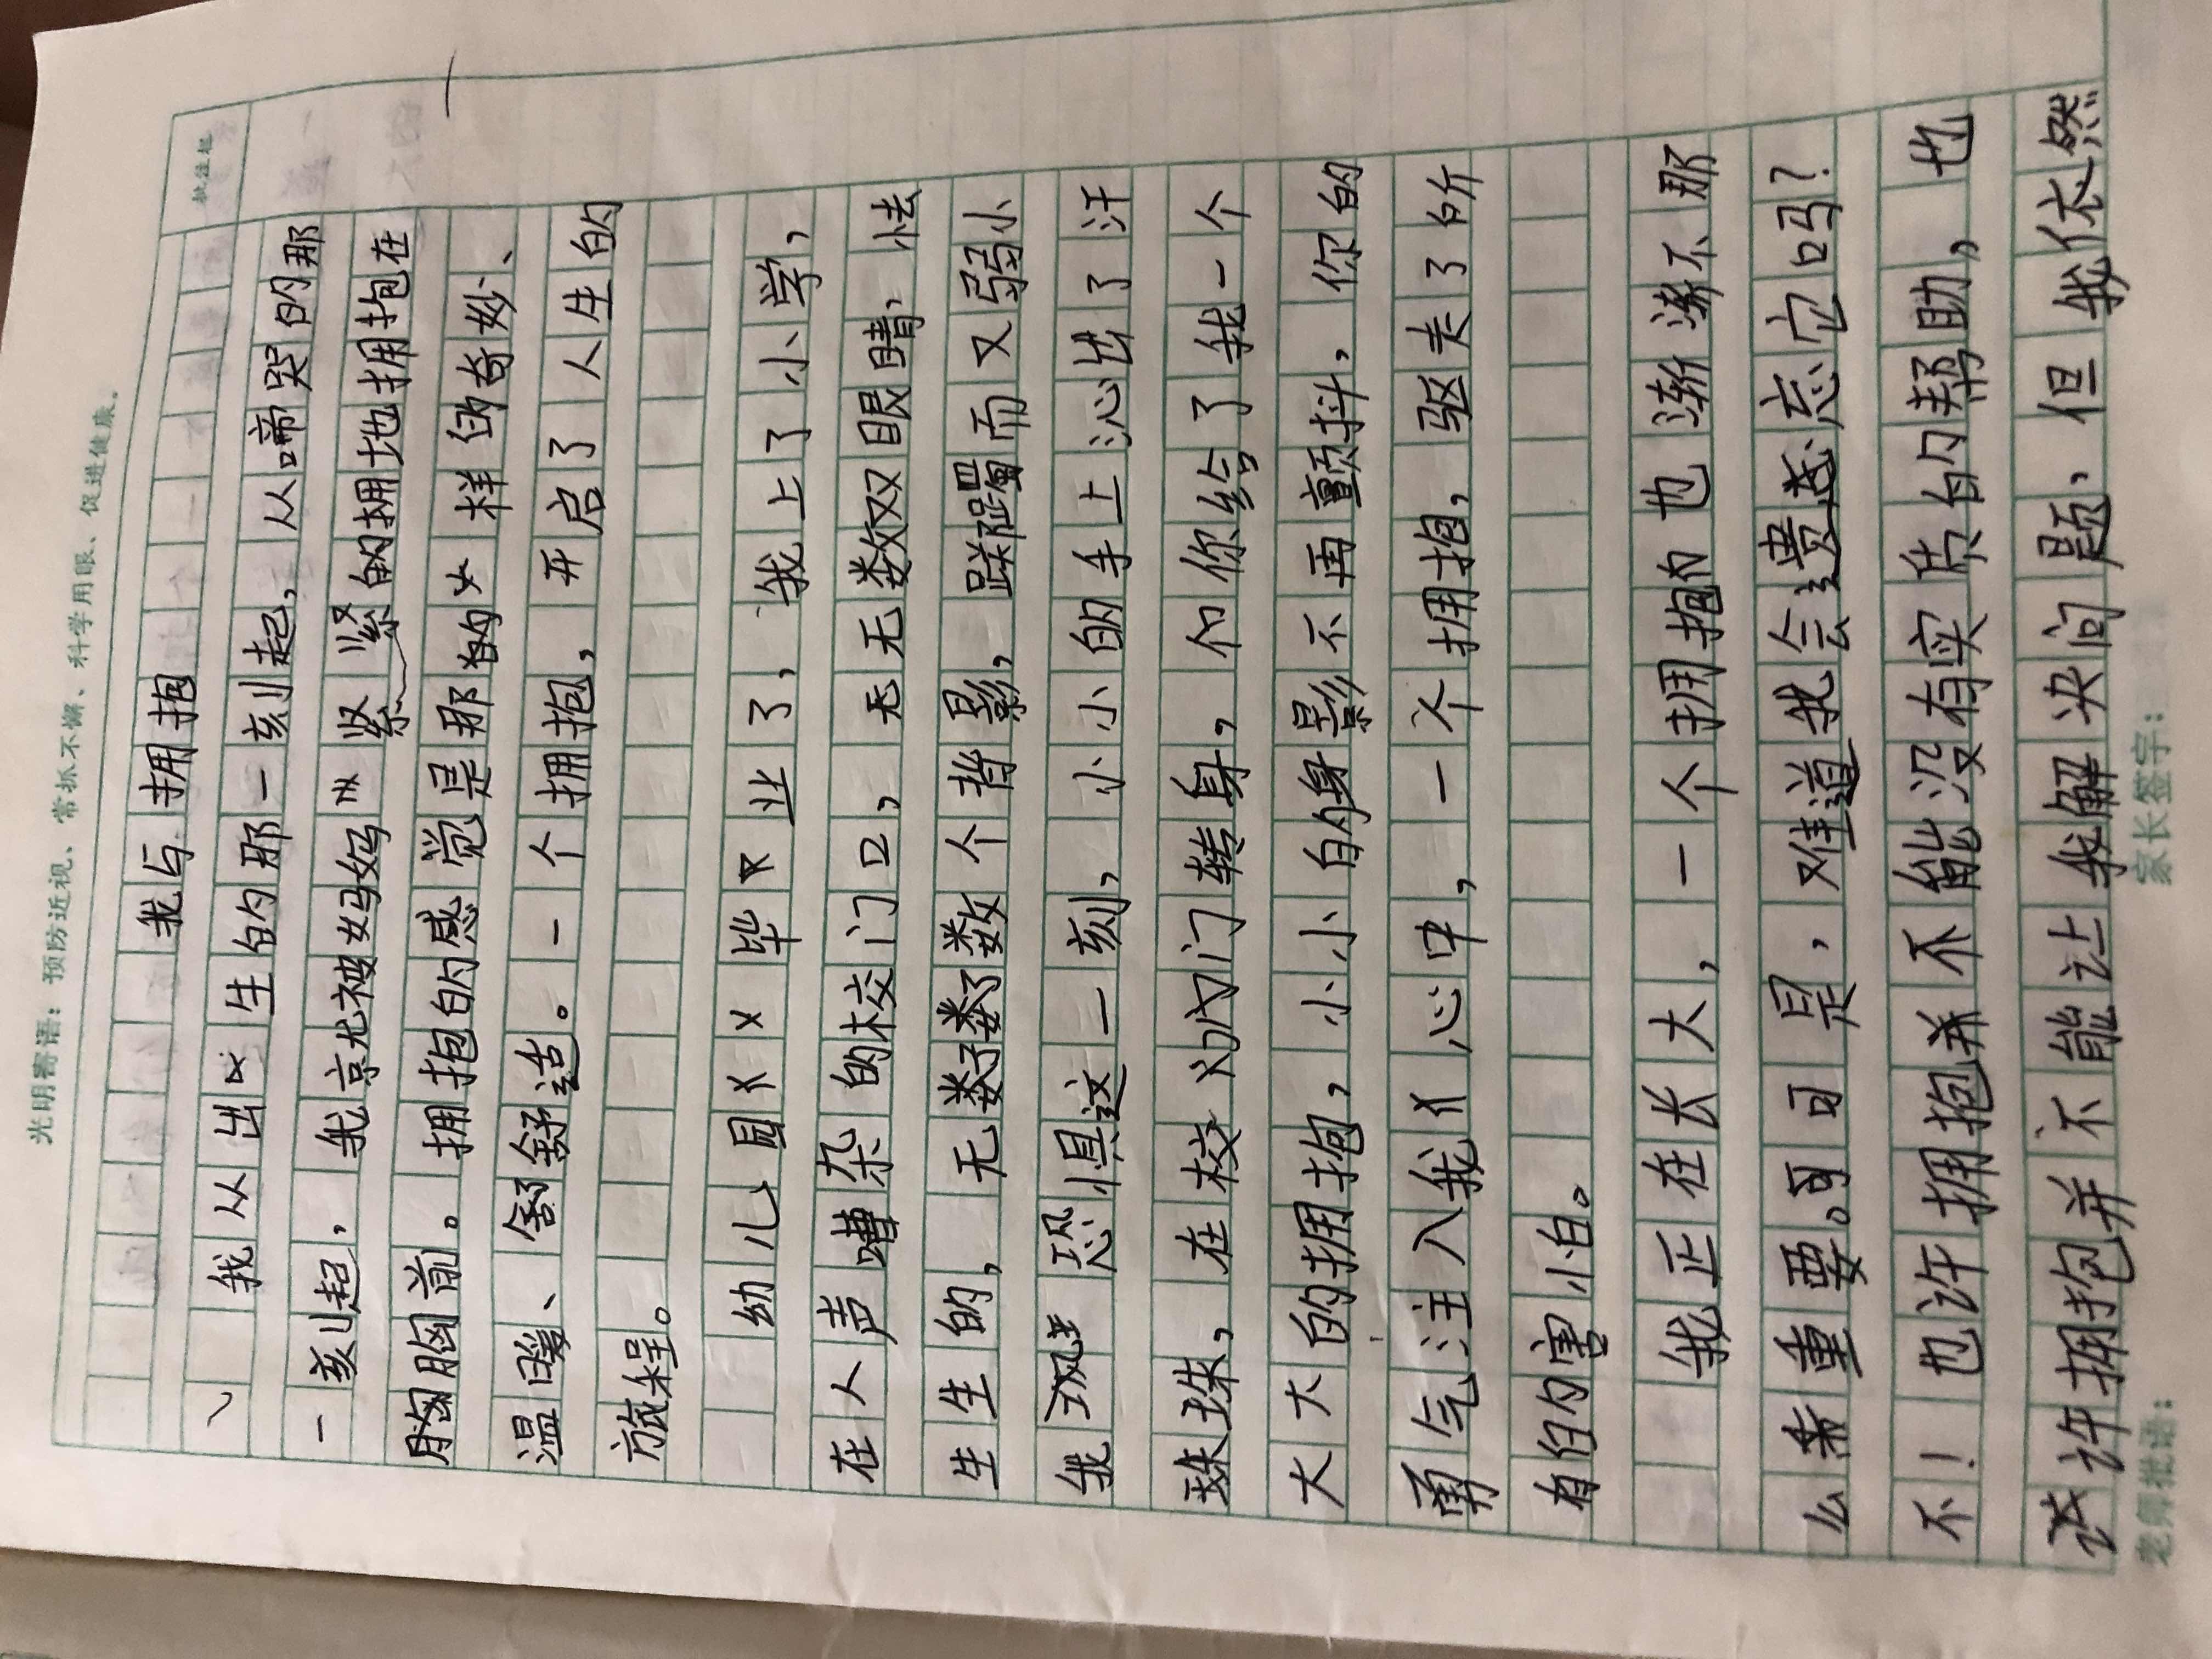 光明寄语：预防近视、常抓不懈、科学用眼、促进健康。
我与拥抱
我从出生的那一刻起，从啼哭的那
一刻起，我就被妈妈紧紧的拥地拥抱在
胸胸前。拥抱的感觉是那的样的奇妙、
温暖、舒舒适。一个拥抱，开启了人生的
旅程。
幼儿园毕业了，我上了小学，
在人声嘈杂的校门口，无无数双眼睛，怯
生生的，无数了数个背影，蹂躏而又弱小
我恐惧这一刻，小小的手上沁出了汗
珠珠，在校门门转身，你给了我一个
大大的拥抱，小小的身影不再颤抖，你的
勇气注入我心中，一个拥抱，驱走了所
有的害怕。
我正在长大，一个拥抱的也渐渐不那
么重要。可可是，难道我会遗忘它吗？
不！也许拥抱并不能没有实质的帮助，也
许拥抱并不能让我解决问题，但我依然
老师批语：
家长签字：